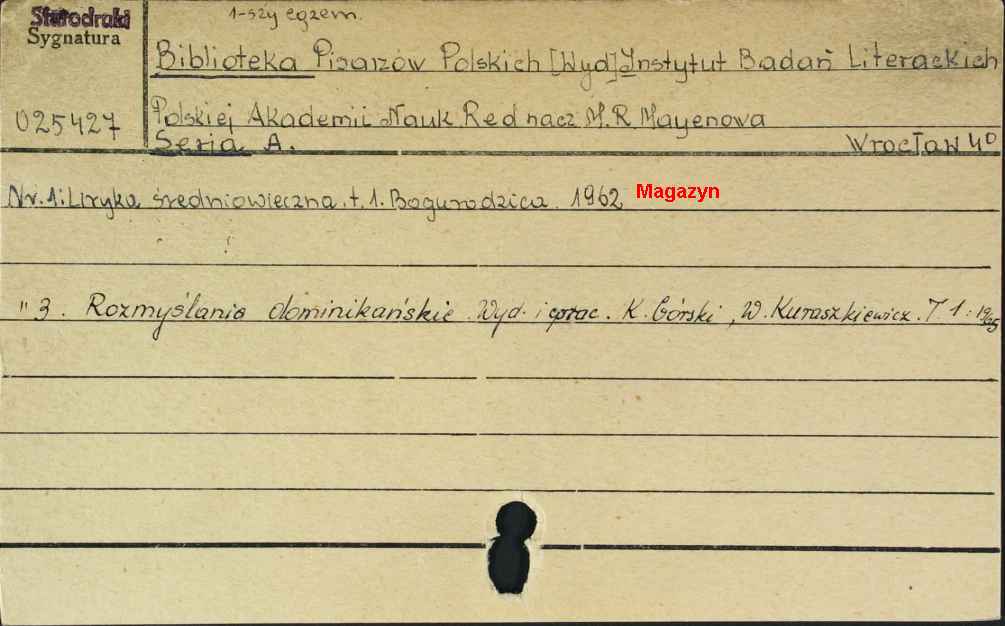 Starodruki
1-szy egzem.
Sygnatura
Biblioteka Pisarzów Polskich [Wyd] Instytut Badań Literackich
025427
Polskiej Akademii Nauk. Red nacz M. R. Mayenowa
Seria A. Wrocław 4⁰
Nr. 1: Liryka średniowieczna. t. 1. Bogurodzica. 1962 Magazyn
" 3. Rozmyślania dominikańskie. Wyd. i oprac. K. Górski, W. Kuraszkiewicz. T 1: 1965